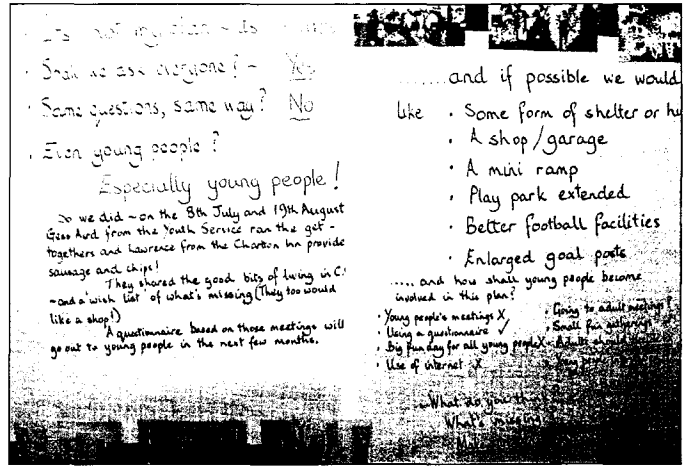 · It's not my plan ~ its
· Shall we ask everyone? ~ Yes
· Same questions, same way? No
· Even young people?
Especially young people!
So we did ~ on the 8th July and 19th August
from the Youth Service ran the get-
togethers and Lawrence from the Charlton Inn provide
sausage and chips!
They shared the good bits of living in C
~and a 'wish list' of what's missing (They too would
like a shop!)
A questionnaire based on those meetings will
go out to young people in the next few months.
.......and if possible we would
like · Some form of shelter or hu
· A shop/garage
· A mini ramp
· Play park extended
· Better football facilities
· Enlarged goal posts
..... and how shall young people become
involved in this plan?
· Young people's meetings X
· Using a questionnaire ✓
· Big fun day for all young people X
· Use of internet X
· Going to adult meetings?
· Small fun gatherings
· Adults should
...What do you th
What's missing